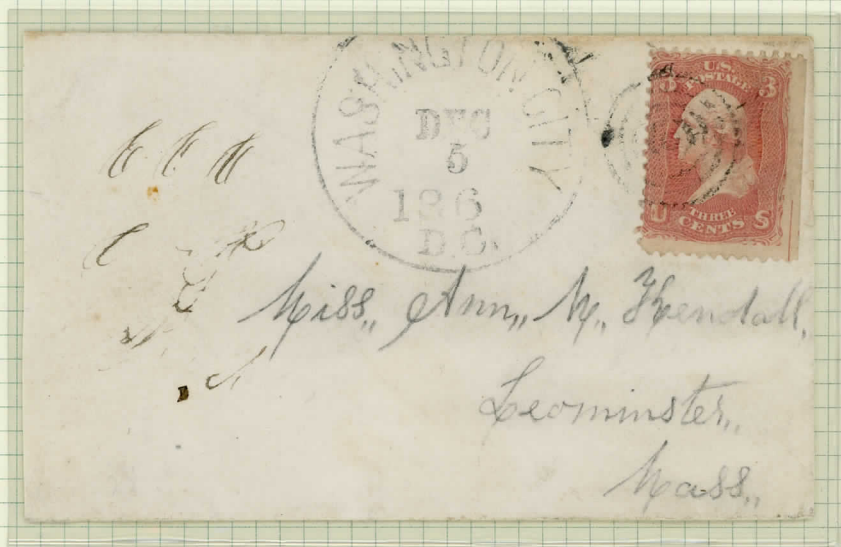 WASHINGTON CITY
DEC
5
186
D.C.
U.S.
POSTAGE
3
THREE
CENTS
U S
Miss,, Ann,, M,, Kendall,
Leominster,,
Mass,,